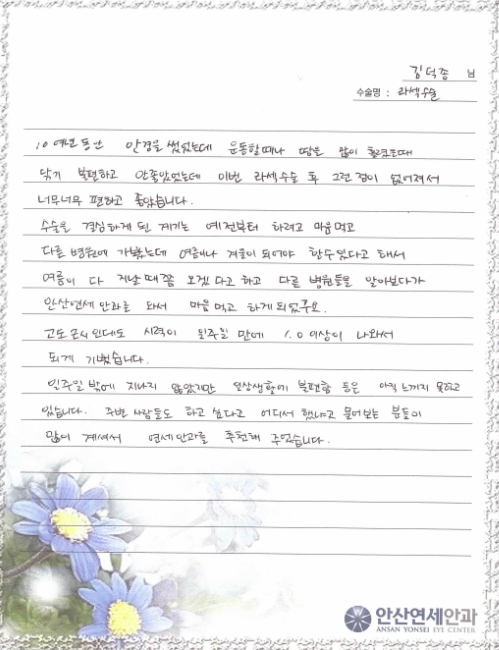 김덕종 님
수술명 : 라섹수술
10여년동안 안경을 썼었는데 운동할때나 땀을 많이 흘렸을때
닦기 불편하고 안좋았었는데 이번 라섹수술 후 그런점이 없어져서
너무너무 편하고 좋았습니다.
수술을 결심하게 된 계기는 예전부터 하려고 마음먹고
다른 병원에 가봤는데 여름이나 겨울이 되어야 할수있다고 해서
여름이 다 지날때쯤 오겠다고 하고 다른 병원들을 알아보다가
안산연세안과를 와서 마음먹고 하게되었구요.
고도근시인데도 시력이 일주일 만에 1.0이상이 나와서
되게 기뻤습니다.
일주일밖에 지나지 않았지만 일상생활에 불편함 등은 아직 느끼지 못하고
있습니다. 주변 사람들도 하고 싶다고 어디서 했냐고 물어보는 분들이
많이 계셔서 연세안과를 추천해 주었습니다.
안산연세안과
ANSAN YONSEI EYE CENTER